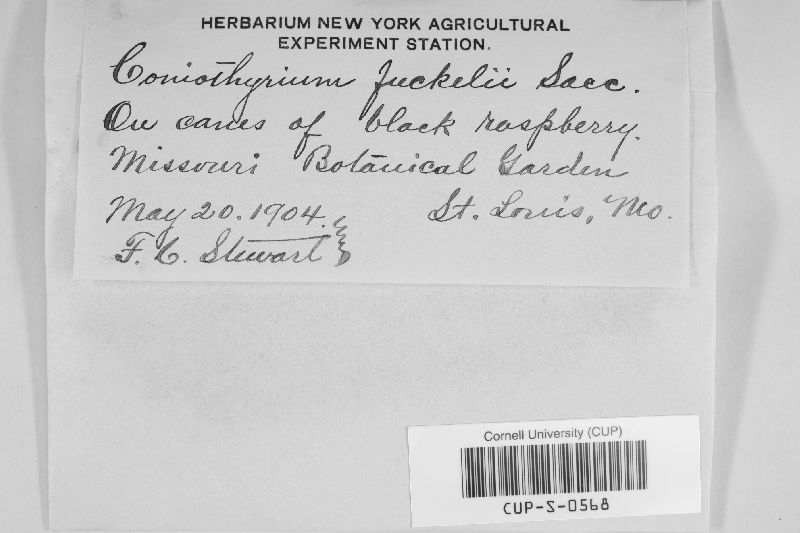 HERBARIUM NEW YORK AGRICULTURAL
EXPERIMENT STATION.
Coniothyrium fuckelii Sacc.
On canes of black raspberry.
Missouri Botanical Garden
May 20. 1904. St. Louis, Mo.
F. C. Stewart
Cornell University (CUP)
CUP-S-0568